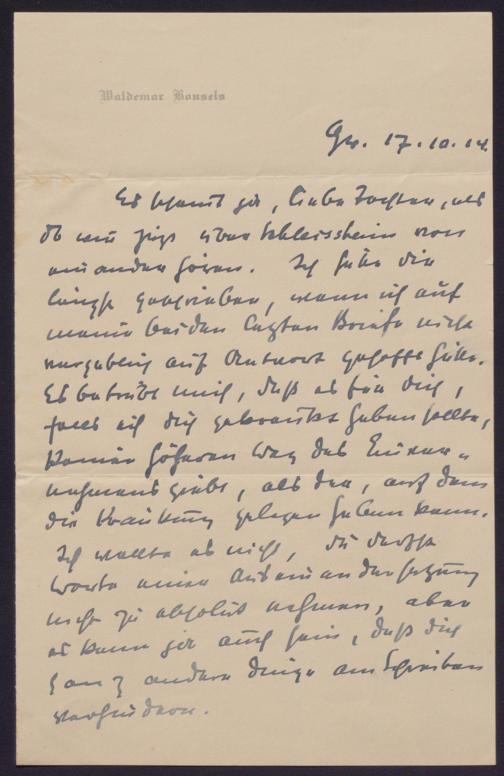 Waldemar Bonsels
17.10.14.
Es scheint ja, liebe als
ob wir über Schleissheim von
einander hören. Ich hätte dir
längst geschrieben, wenn ich auf
meine beiden letzten Briefe nicht
vergeblich auf Antwort gehofft hätte.
Es betrübt mich, daß es für dich,
falls ich dich gekränkt haben sollte,
keinen höheren Weg des Einver„
nehmens giebt, als den, auf dem
die Kränkung gelegen haben kann.
Ich wollte es nicht, du darfst
Worte einer Auseinandersetzung
nicht zu absolut nehmen, aber
es kann ja auch sein, daß dich
ganz andere Dinge am Schreiben
verhindern.